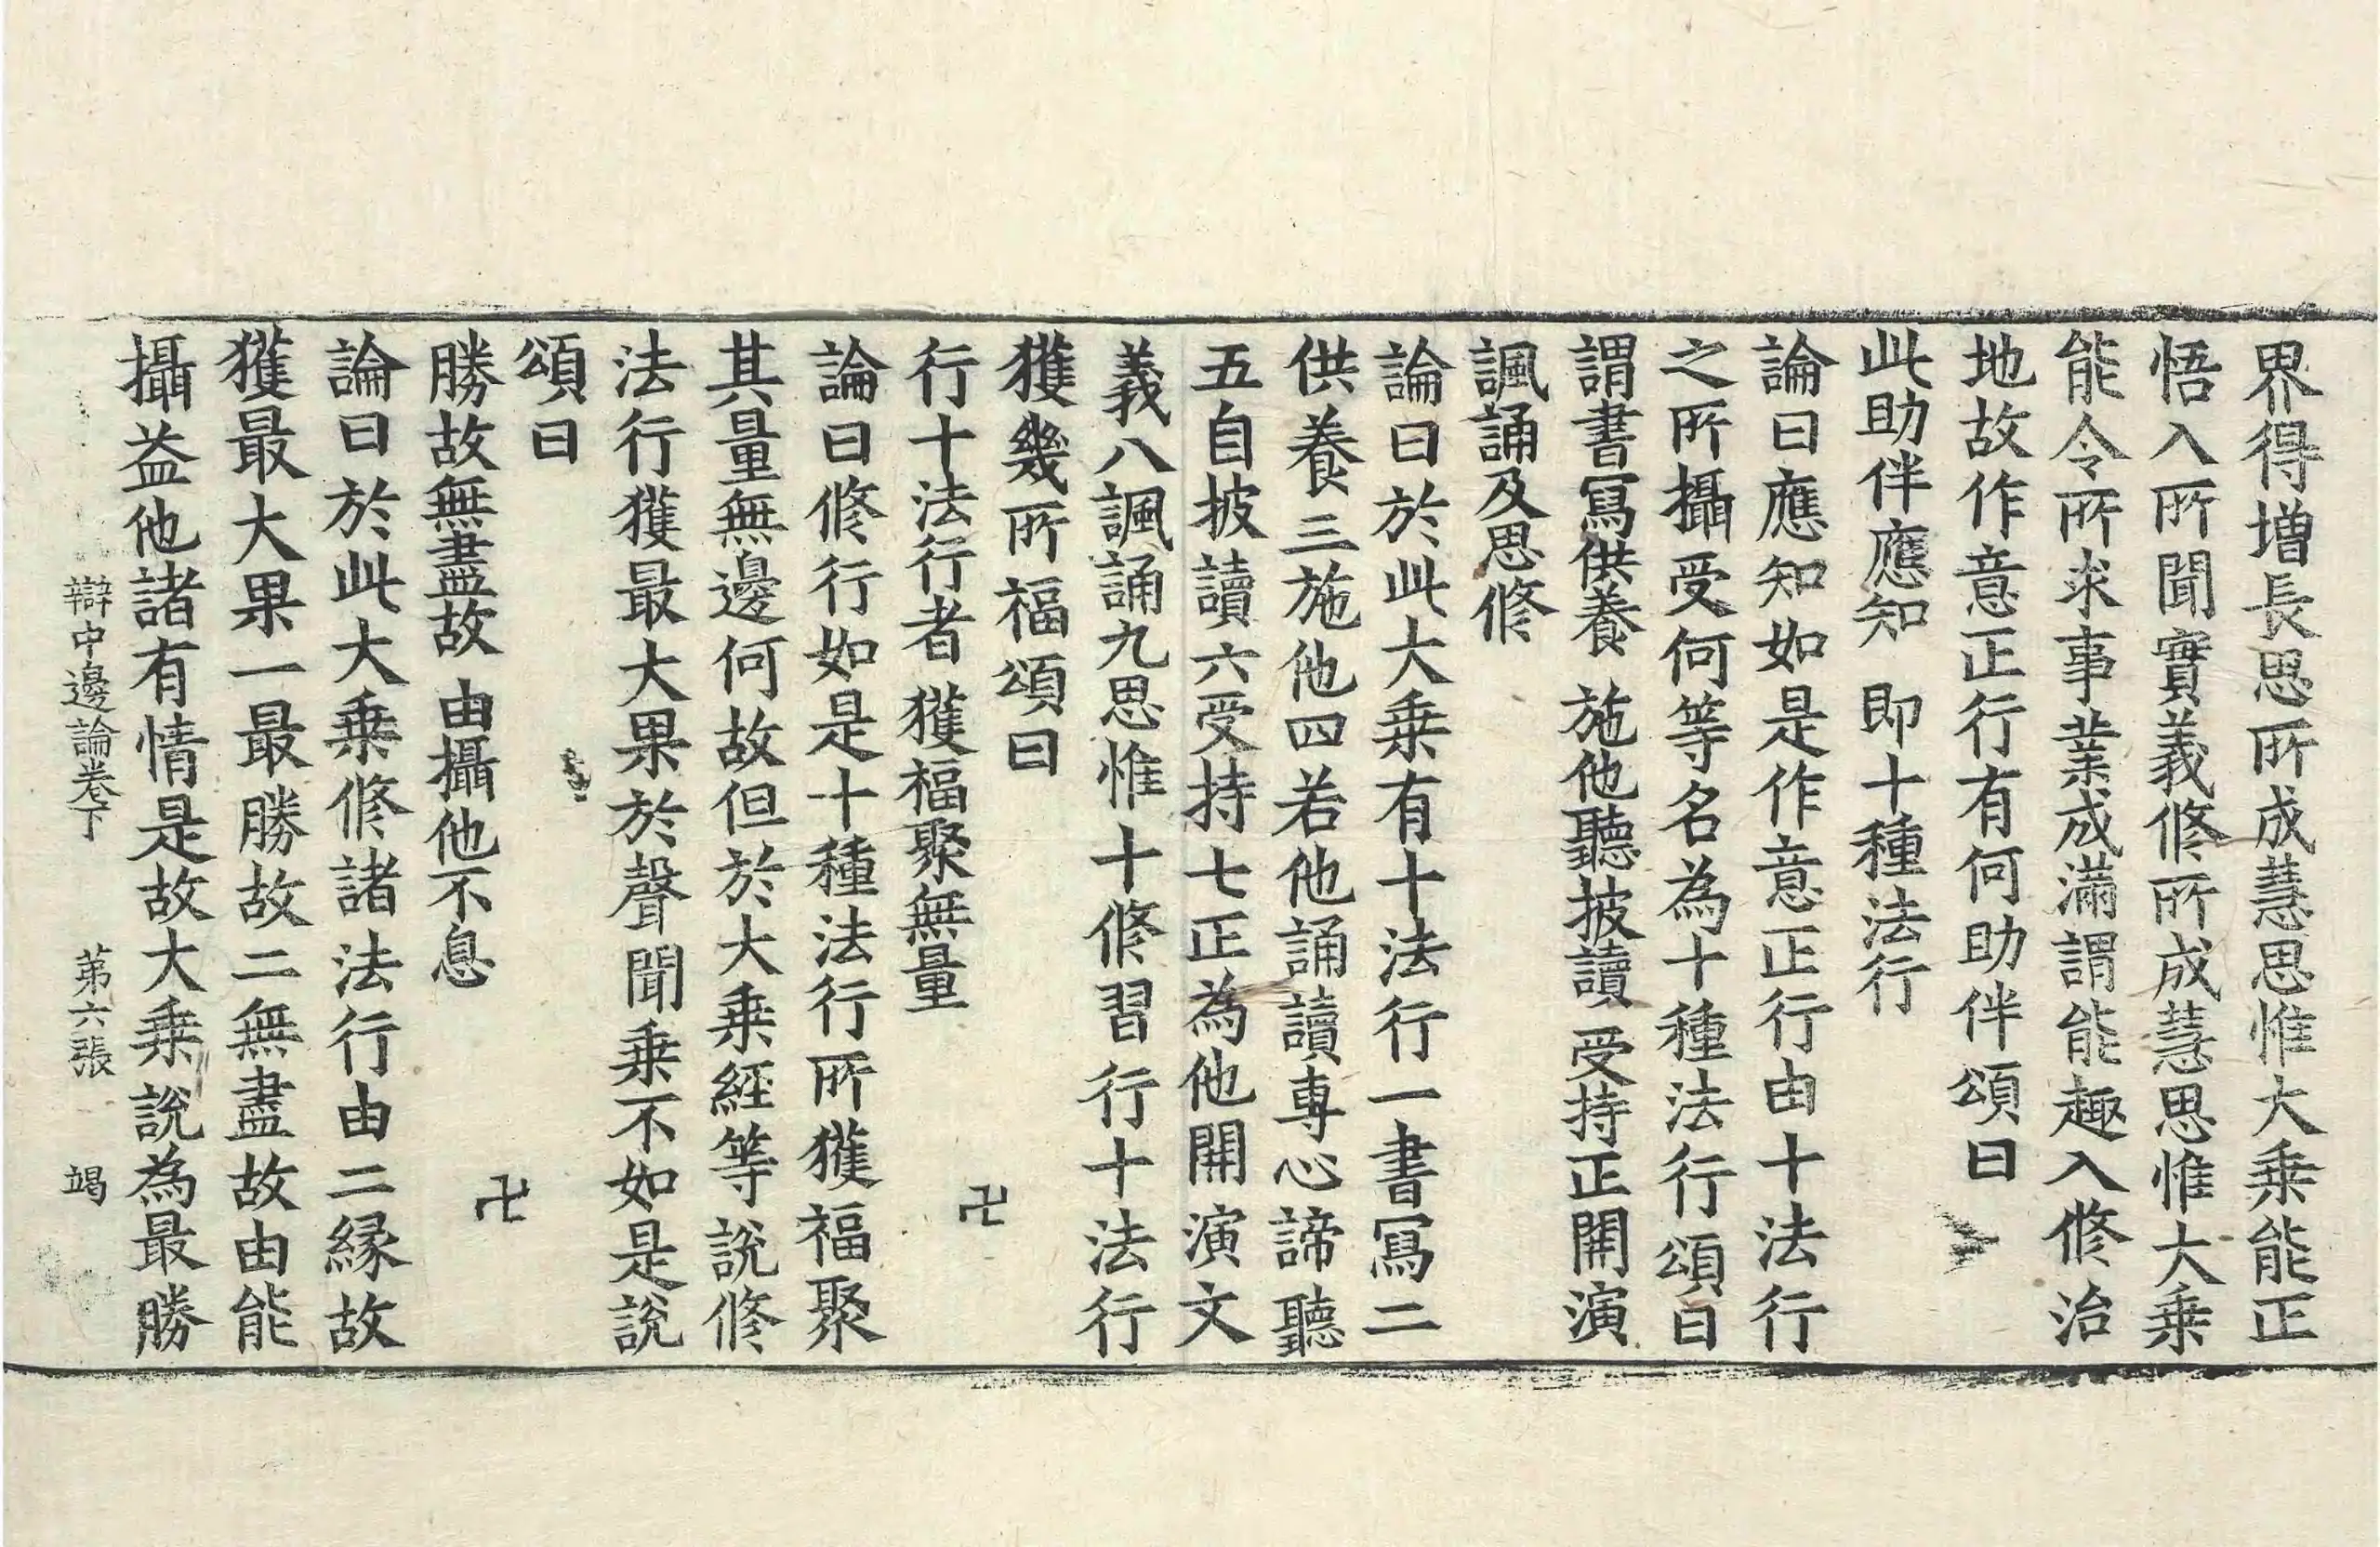 界得増長思所成慧思惟大乗能正
悟入所聞實義修所成慧思惟大乗
能令所求事業成滿謂能趣入修治
地故作意正行有何助伴頌曰
此助伴應知　即十種法行
論曰應知如是作意正行由十法行
之所攝受何等名為十種法行頌曰
謂書寫供養　施他聽披讀　受持正開演
諷誦及思修
論曰於此大乗有十法行一書寫二
供養三施他四若他誦讀專心諦聽
五自披讀六受持七正為他開演文
義八諷誦九思惟十修習行十法行
獲幾所福頌曰
行十法行者　獲福聚無量　卍
論曰修行如是十種法行所獲福聚
其量無邊何故但於大乗經等說修
法行獲最大果於聲聞乗不如是說
頌曰
勝故無盡故　由攝他不息　卍
論曰於此大乗修諸法行由二縁故
獲最大果一最勝故二無盡故由能
攝益他諸有情是故大乗說為最勝
辯中邊論卷下　第六張　竭